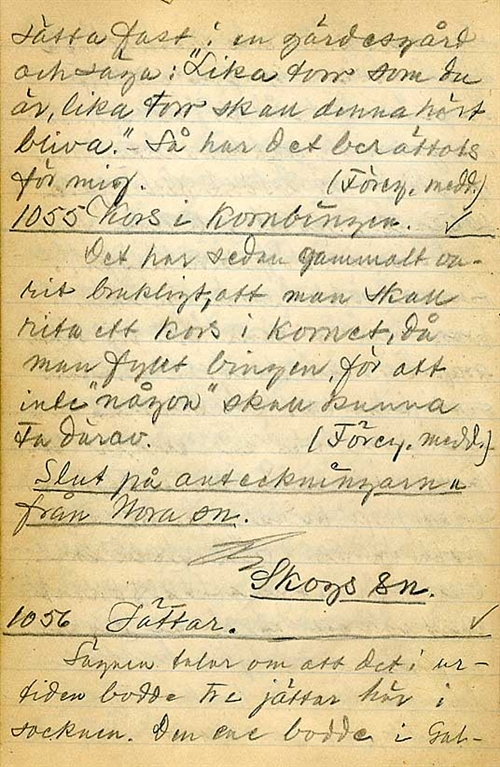 sätta fast i en gärdesgård
och säga: "Lika torr som du
är, lika torr skall denna hört
bliva." - Så har det berättats
för mig. (Föreg. medd.)
1055 Kors i kornbingen.
Det har sedan gammalt va-
rit brukligt, att man skall
rita ett kors i kornet, då
man fyllt bingen, för att
inte "någon" skall kunna
ta därav. (Föreg. medd.)
Slut på anteckningarna
från Nora sn.
Skogs sn.
1056 Jättar.
Sägnen talar om att det i ur-
tiden bodde tre jättar här i
socknen. Den ene bodde i Gal-